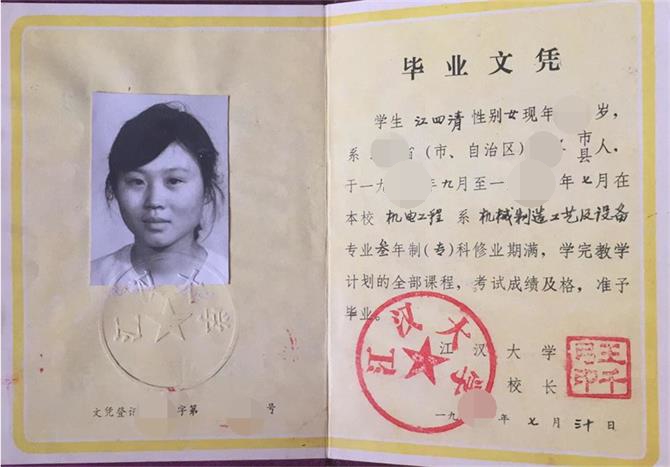 毕业文凭
学生 江四清 性别女现年 岁，
系 省（市、自治区） 市县人，
于一九 年九月至一 年七月在
本校 机电工程 系 机械制造工艺及设备
专业叁年制（专）科修业期满，学完教学
计划的全部课程，考试成绩及格，准予
毕业。
江汉大学
校长
一九 年 七月三十日
江汉大学
文凭登记 字第 号
江汉大学